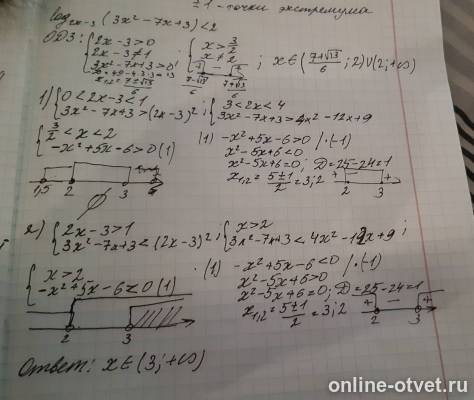 ±1 - точки экстремума
log₂ₓ₋₃ (3x² - 7x + 3) < 2
ОДЗ: { 2x - 3 > 0 ; 2x - 3 ≠ 1 ; 3x² - 7x + 3 > 0 ; { x > 3/2 ; x ≠ 2 ; x ∈ (7+√13/6 ; 2) ∪ (2; +∞)
x₁,₂ = 7±√13/6
7-√13/6 7+√13/6
1) { 0 < 2x - 3 < 1 ; 3x² - 7x + 3 > (2x - 3)² ; { 3 < 2x < 4 ; 3x² - 7x + 3 > 4x² - 12x + 9
{ 3/2 < x < 2 ; -x² + 5x - 6 > 0 (1)
(1) -x² + 5x - 6 > 0 /·(-1)
x² - 5x + 6 < 0
x² - 5x + 6 = 0; D = 25 - 24 = 1
x₁,₂ = 5±1/2 = 3; 2
+ - +
2 3
1,5 2 3
∅
2) { 2x - 3 > 1 ; 3x² - 7x + 3 < (2x - 3)² ; { x > 2 ; 3x² - 7x + 3 < 4x² - 12x + 9 ;
{ x > 2 ; -x² + 5x - 6 < 0 (1)
(1) -x² + 5x - 6 < 0 /·(-1)
x² - 5x + 6 > 0
x² - 5x + 6 = 0; D = 25 - 24 = 1
x₁,₂ = 5±1/2 = 3; 2
+ - +
2 3
2 3
Ответ: x ∈ (3; +∞)
online-otvet.ru